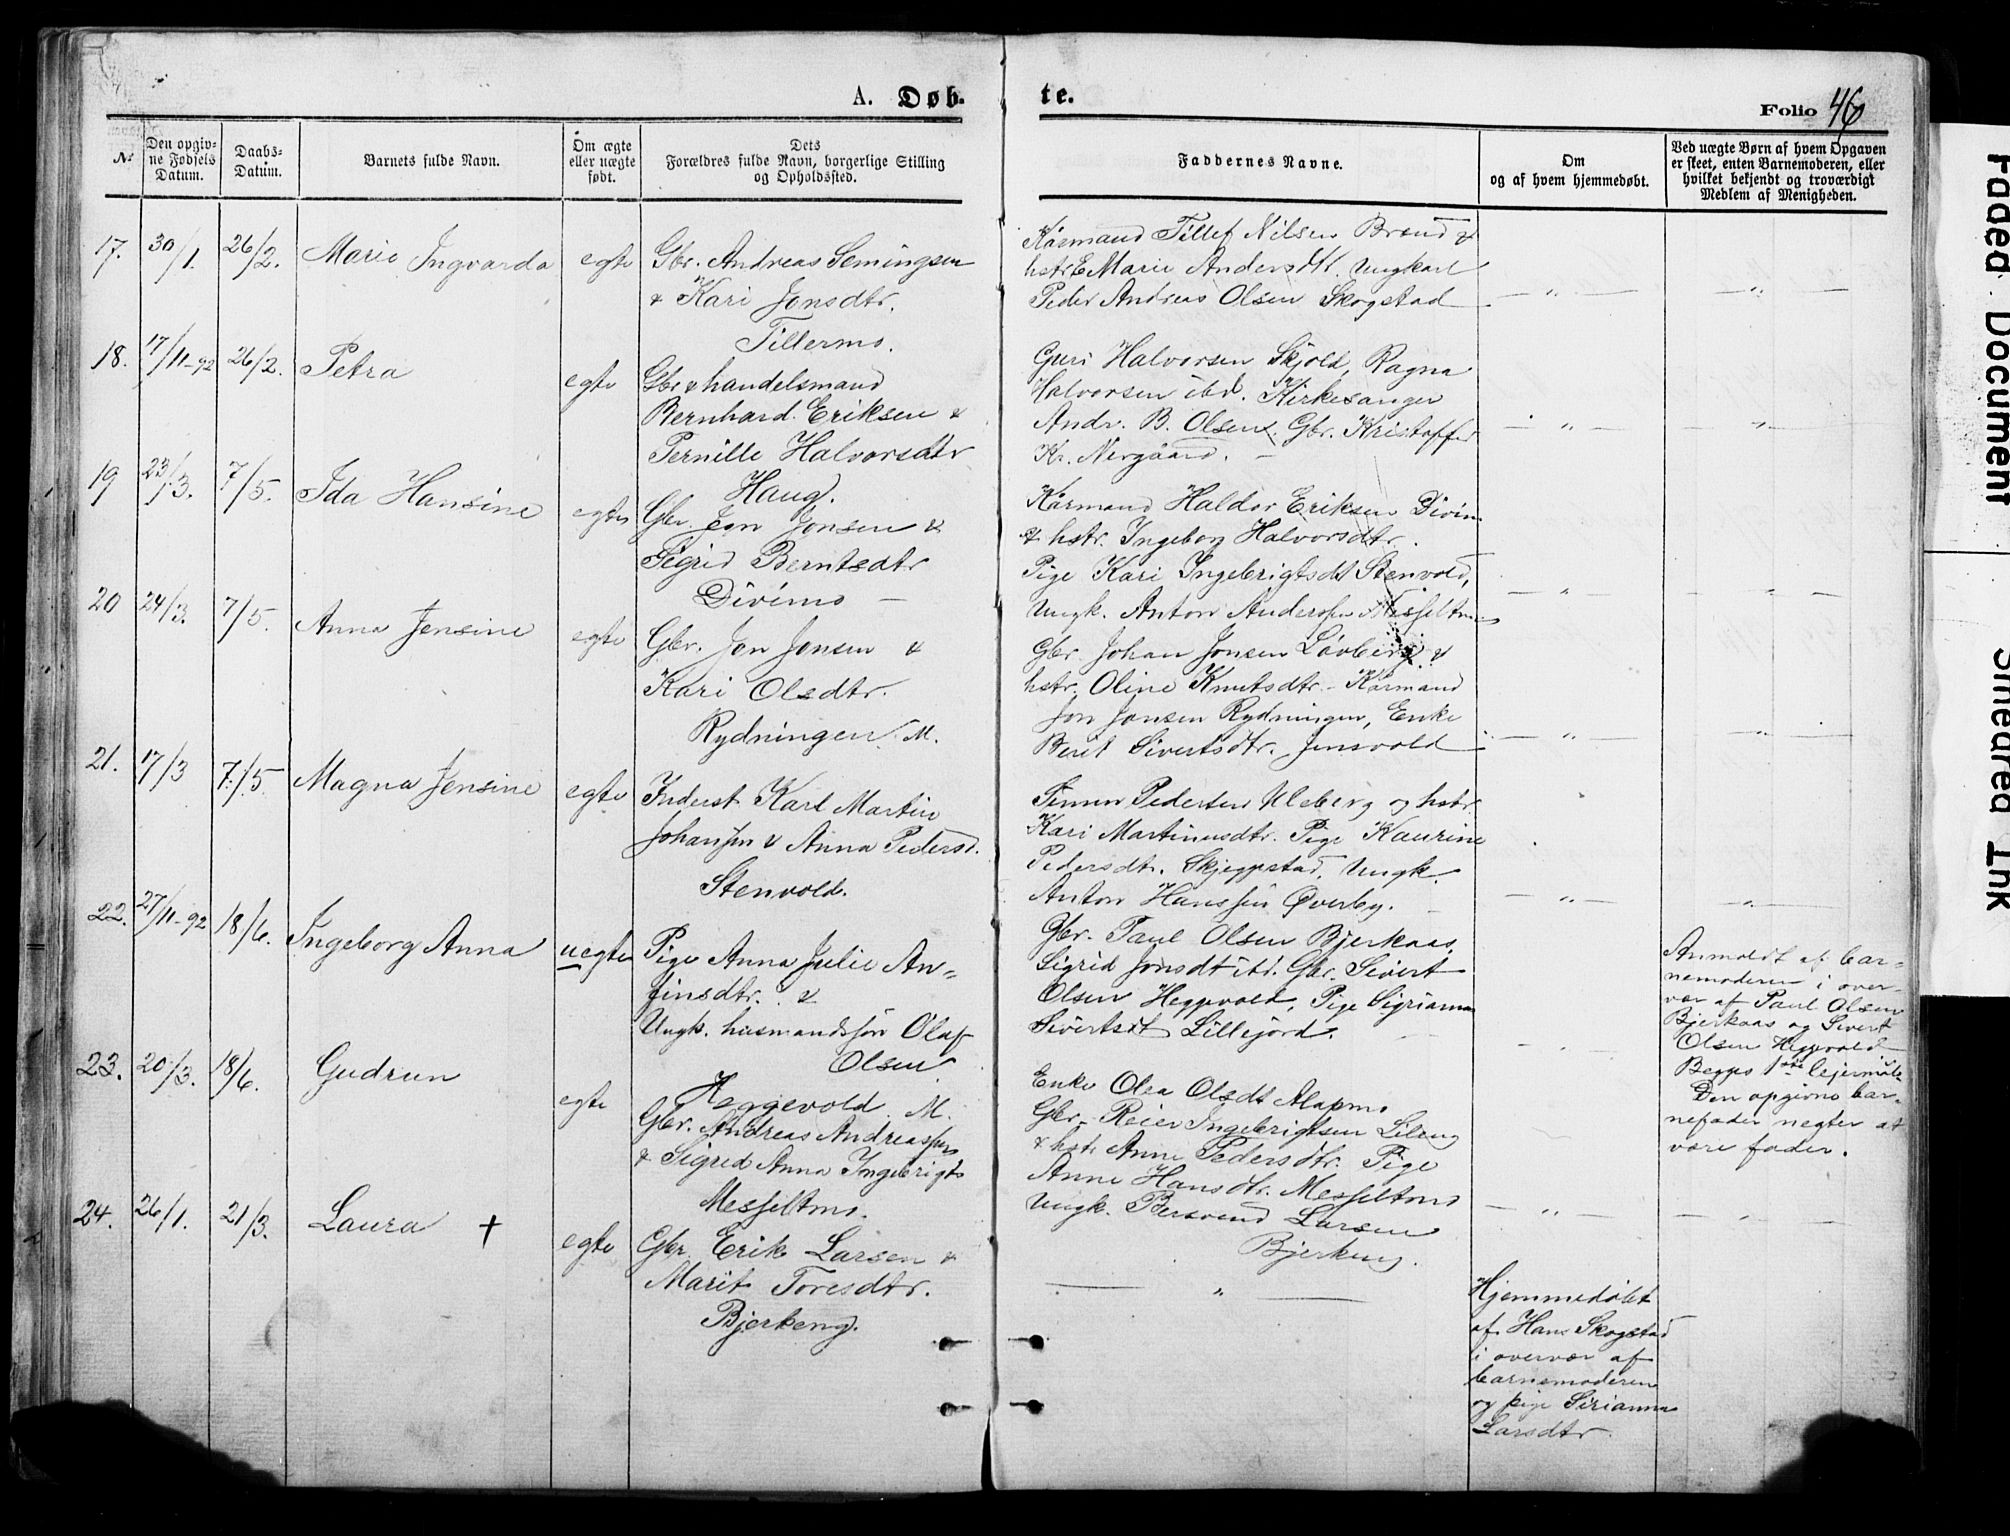 A. Døb-
te.
Folio 46
№
Den opgiv-
ne Fødsels
Datum.
Daabs-
Datum.
Barnets fulde Navn.
Om ægte
eller uægte
født.
Dets
Forældres fulde Navn, borgerlige Stilling
og Opholdssted.
Faddernes Navne.
Om
og af hvem hjemmedøbt.
Ved uægte Børn af hvem Opgaven
er skeet, enten Barnemoderen, eller
hvilket bekjendt og troværdigt
Medlem af Menigheden.
17. 30/1. 26/2. Marie Ingvarda egte
Gbr. Andreas Semingsen
& Kari Jonsdtr.
Tillermo.
Kårmand Tillef Nilsen Brend &
hstr E Marie Andersdtr. Ungkarl
Peder Andreas Olsen Skogstad
— " — — " —
18. 17/11-92 26/2. Petra egte
Gbr & handelsmand
Bernhard Eriksen &
Pernille Halvorsdtr
Haug.
Guri Halvorsen Skjold, Ragna
Halvorsen ibd. Kirkesanger
Andr. B. Olsen. Gbr. Kristoffer
Kr. Nergaard. —
— " — — " —
19 23/3. 7/5. Ida Hansine egte
Gbr. Jon Jonsen &
Sigrid Berntsdtr
Divimo —
Kårmand Haldor Eriksen Divim
& hstr. Ingebor Halvorsdtr.
Pige Kari Ingebrigtsdt Stenvold,
Ungk. Anton Anderssen Messeltmo
— " — — " —
20 24/3. 7/5. Anna Jensine egte
Gbr. Jon Jonsen &
Kari Olsdtr.
Rydningen M.
Gbr. Johan Jonsen Løvberg &
hstr. Oline Knutsdtr - Kårmand
Jon Jonsen Rydningen, Enke
Berit Sivertsdtr. Jensvold
— " — — " —
21. 17/3 7/5 Magna Jensine egte
Inderst Karl Martin
Johanssen & Anna Pedersd.
Stenvold.
Simen Pedersen Uleberg og hstr.
Kari Martinusdtr. Pige Kaurine
Pedersdtr. Skjeggstad, Ungk.
Anton Hanssen Øverby.
— " — — " —
22. 27/11-92 18/6. Ingeborg Anna uegte
Pige Anna Julie An-
finsdtr. &
Ungk. husmandssøn Olaf
Olsen
Heggevold. M.
Gbr. Paul Olsen Bjerkaas,
Sigrid Jonsdt ibd. Gbr. Sivert
Olsen Heggvold, Pige Sigrianna
Sivertsdt Lillejord.
Anmeldt af bar-
nemoderen i over-
vær af Paul Olsen
Bjerkaas og Sivert
Olsen Heggvold
Begges 1ste leiermål.
Den opgivne bar-
nefader negter at
være fader.
23. 20/3. 18/6. Gudrun egte
Gbr. Andreas Andreassen
& Sigrid Anna Ingebrigts
Messeltmo.
Enke Olea Olsdt Alapmo
Gbr. Reier Ingebrigtsen Lileng
& hstr Anne Pedersdtr. Pige
Anne Hansdtr. Messeltmo
Ungk. Bersvend Larsen
Bjerkeng.
— " — — " —
24. 26/1. 21/3. Laura † egte
Gbr. Erik Larsen &
Marit Toresdtr.
Bjerkeng.
— " —
Hjemmedøbt
af Hans Skogstad
i overvær af
barnemoderen
og pige Sirianna
Larsdtr
Faded Document
Smeared Ink